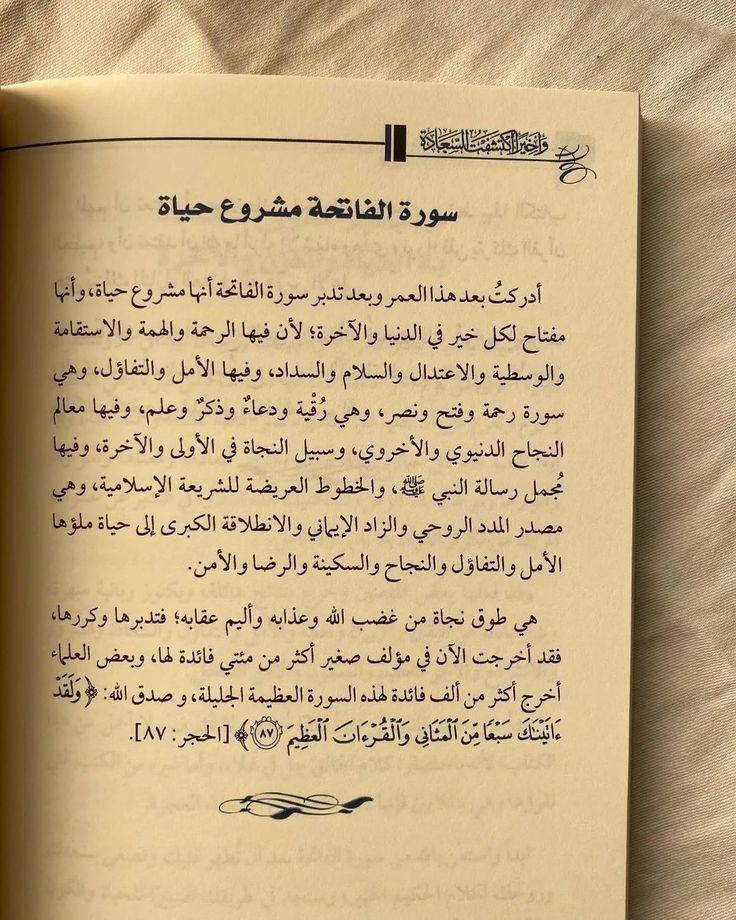 وأخيراً اكتشفت السعادة
سورة الفاتحة مشروع حياة
أدركتُ بعد هذا العمر وبعد تدبر سورة الفاتحة أنها مشروع حياة، وأنها
مفتاح لكل خير في الدنيا والآخرة؛ لأن فيها الرحمة والهمة والاستقامة
والوسطية والاعتدال والسلام والسداد، وفيها الأمل والتفاؤل، وهي
سورة رحمة وفتح ونصر، وهي رُقْية ودعاءٌ وذكرٌ وعلم، وفيها معالم
النجاح الدنيوي والأخروي، وسبيل النجاة في الأولى والآخرة، وفيها
مُجمل رسالة النبي ﷺ، والخطوط العريضة للشريعة الإسلامية، وهي
مصدر المدد الروحي والزاد الإيماني والانطلاقة الكبرى إلى حياة ملؤها
الأمل والتفاؤل والنجاح والسكينة والرضا والأمن.
هي طوق نجاة من غضب الله وعذابه وأليم عقابه؛ فتدبرها وكررها،
فقد أخرجت الآن في مؤلف صغير أكثر من مئتي فائدة لها، وبعض العلماء
أخرج أكثر من ألف فائدة لهذه السورة العظيمة الجليلة، و صدق الله: ﴿وَلَقَدْ
ءَاتَيْنَٰكَ سَبْعًا مِّنَ ٱلْمَثَانِى وَٱلْقُرْءَانَ ٱلْعَظِيمَ ٨٧﴾ [الحجر: ٨٧].